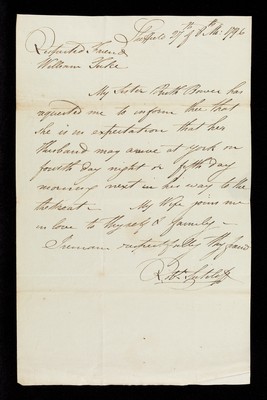 Sheffield 27th of 8th Mo: 1796
Respected Friend
William Tuke
My Sister Ruth Bower has
requested me to inform thee that
She is in expectation that her
Husband may arrive at York on
fourth day night or fifth day
morning next in his way to the
Retreat. My Wife joins me
in love to thyself & family -
I remain respectfully thy friend
Robt. Sutcliff